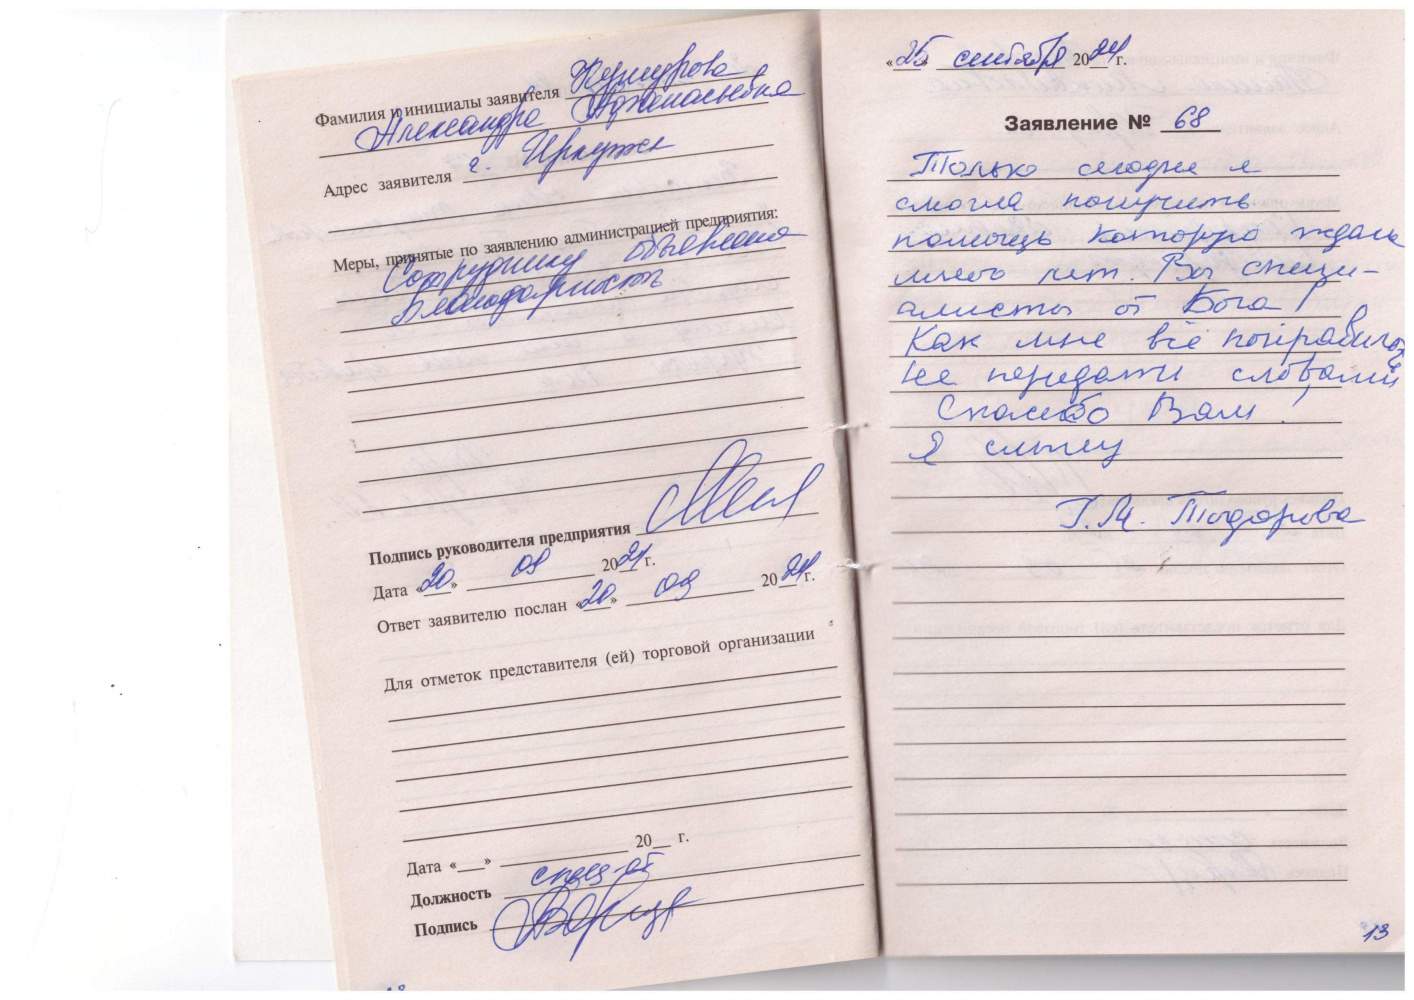 Фамилия и инициалы заявителя
Александра Афанасьевна
Адрес заявителя г. Иркутск
Меры, принятые по заявлению администрацией предприятия:
Сотруднику объявлена
благодарность
Подпись руководителя предприятия
Дата «20» 09 2024 г.
Ответ заявителю послан «20» 09 2024 г.
Для отметок представителя (ей) торговой организации
Дата «___» ___ 20__ г.
Должность спец-от
Подпись
«25» сентября 2024 г.
Заявление № 68
Только сегодня я
смогла получить
помощь которую ждала
много лет. Вы специ-
алисты от Бога!
Как мне всё понравилось
не передать словами
Спасибо Вам!
Я слышу
Г.М. Тодорова
13